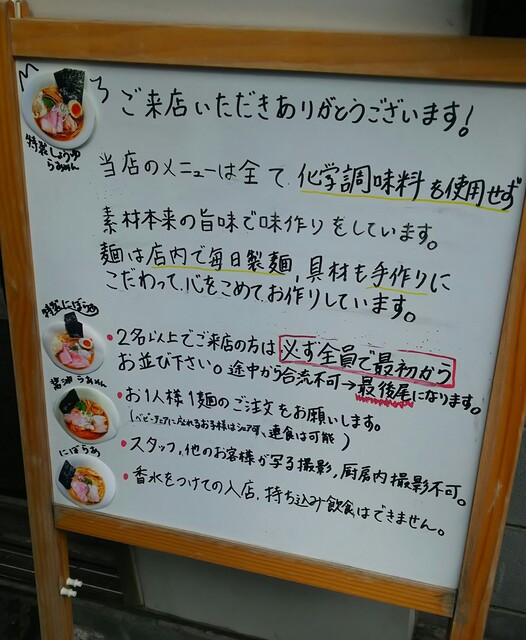 ご来店いただきありがとうございます!
特製しょうゆ
らぁめん
当店のメニューは全て、化学調味料を使用せず
素材本来の旨味で味作りをしています。
麺は店内で毎日製麺、具材も手作りに
こだわって、心をこめてお作りしています。
特製にぼらぁ
・2名以上でご来店の方は必ず全員で最初から
お並び下さい。途中から合流不可→最後尾になります。
醤油らぁめん
・お1人様1麺のご注文をお願いします。
(ベビーチェアに座れるお子様はシェア可、連食は可能)
にぼらぁ
・スタッフ、他のお客様が写る撮影、厨房内撮影不可。
・香水をつけての入店、持ち込み飲食はできません。